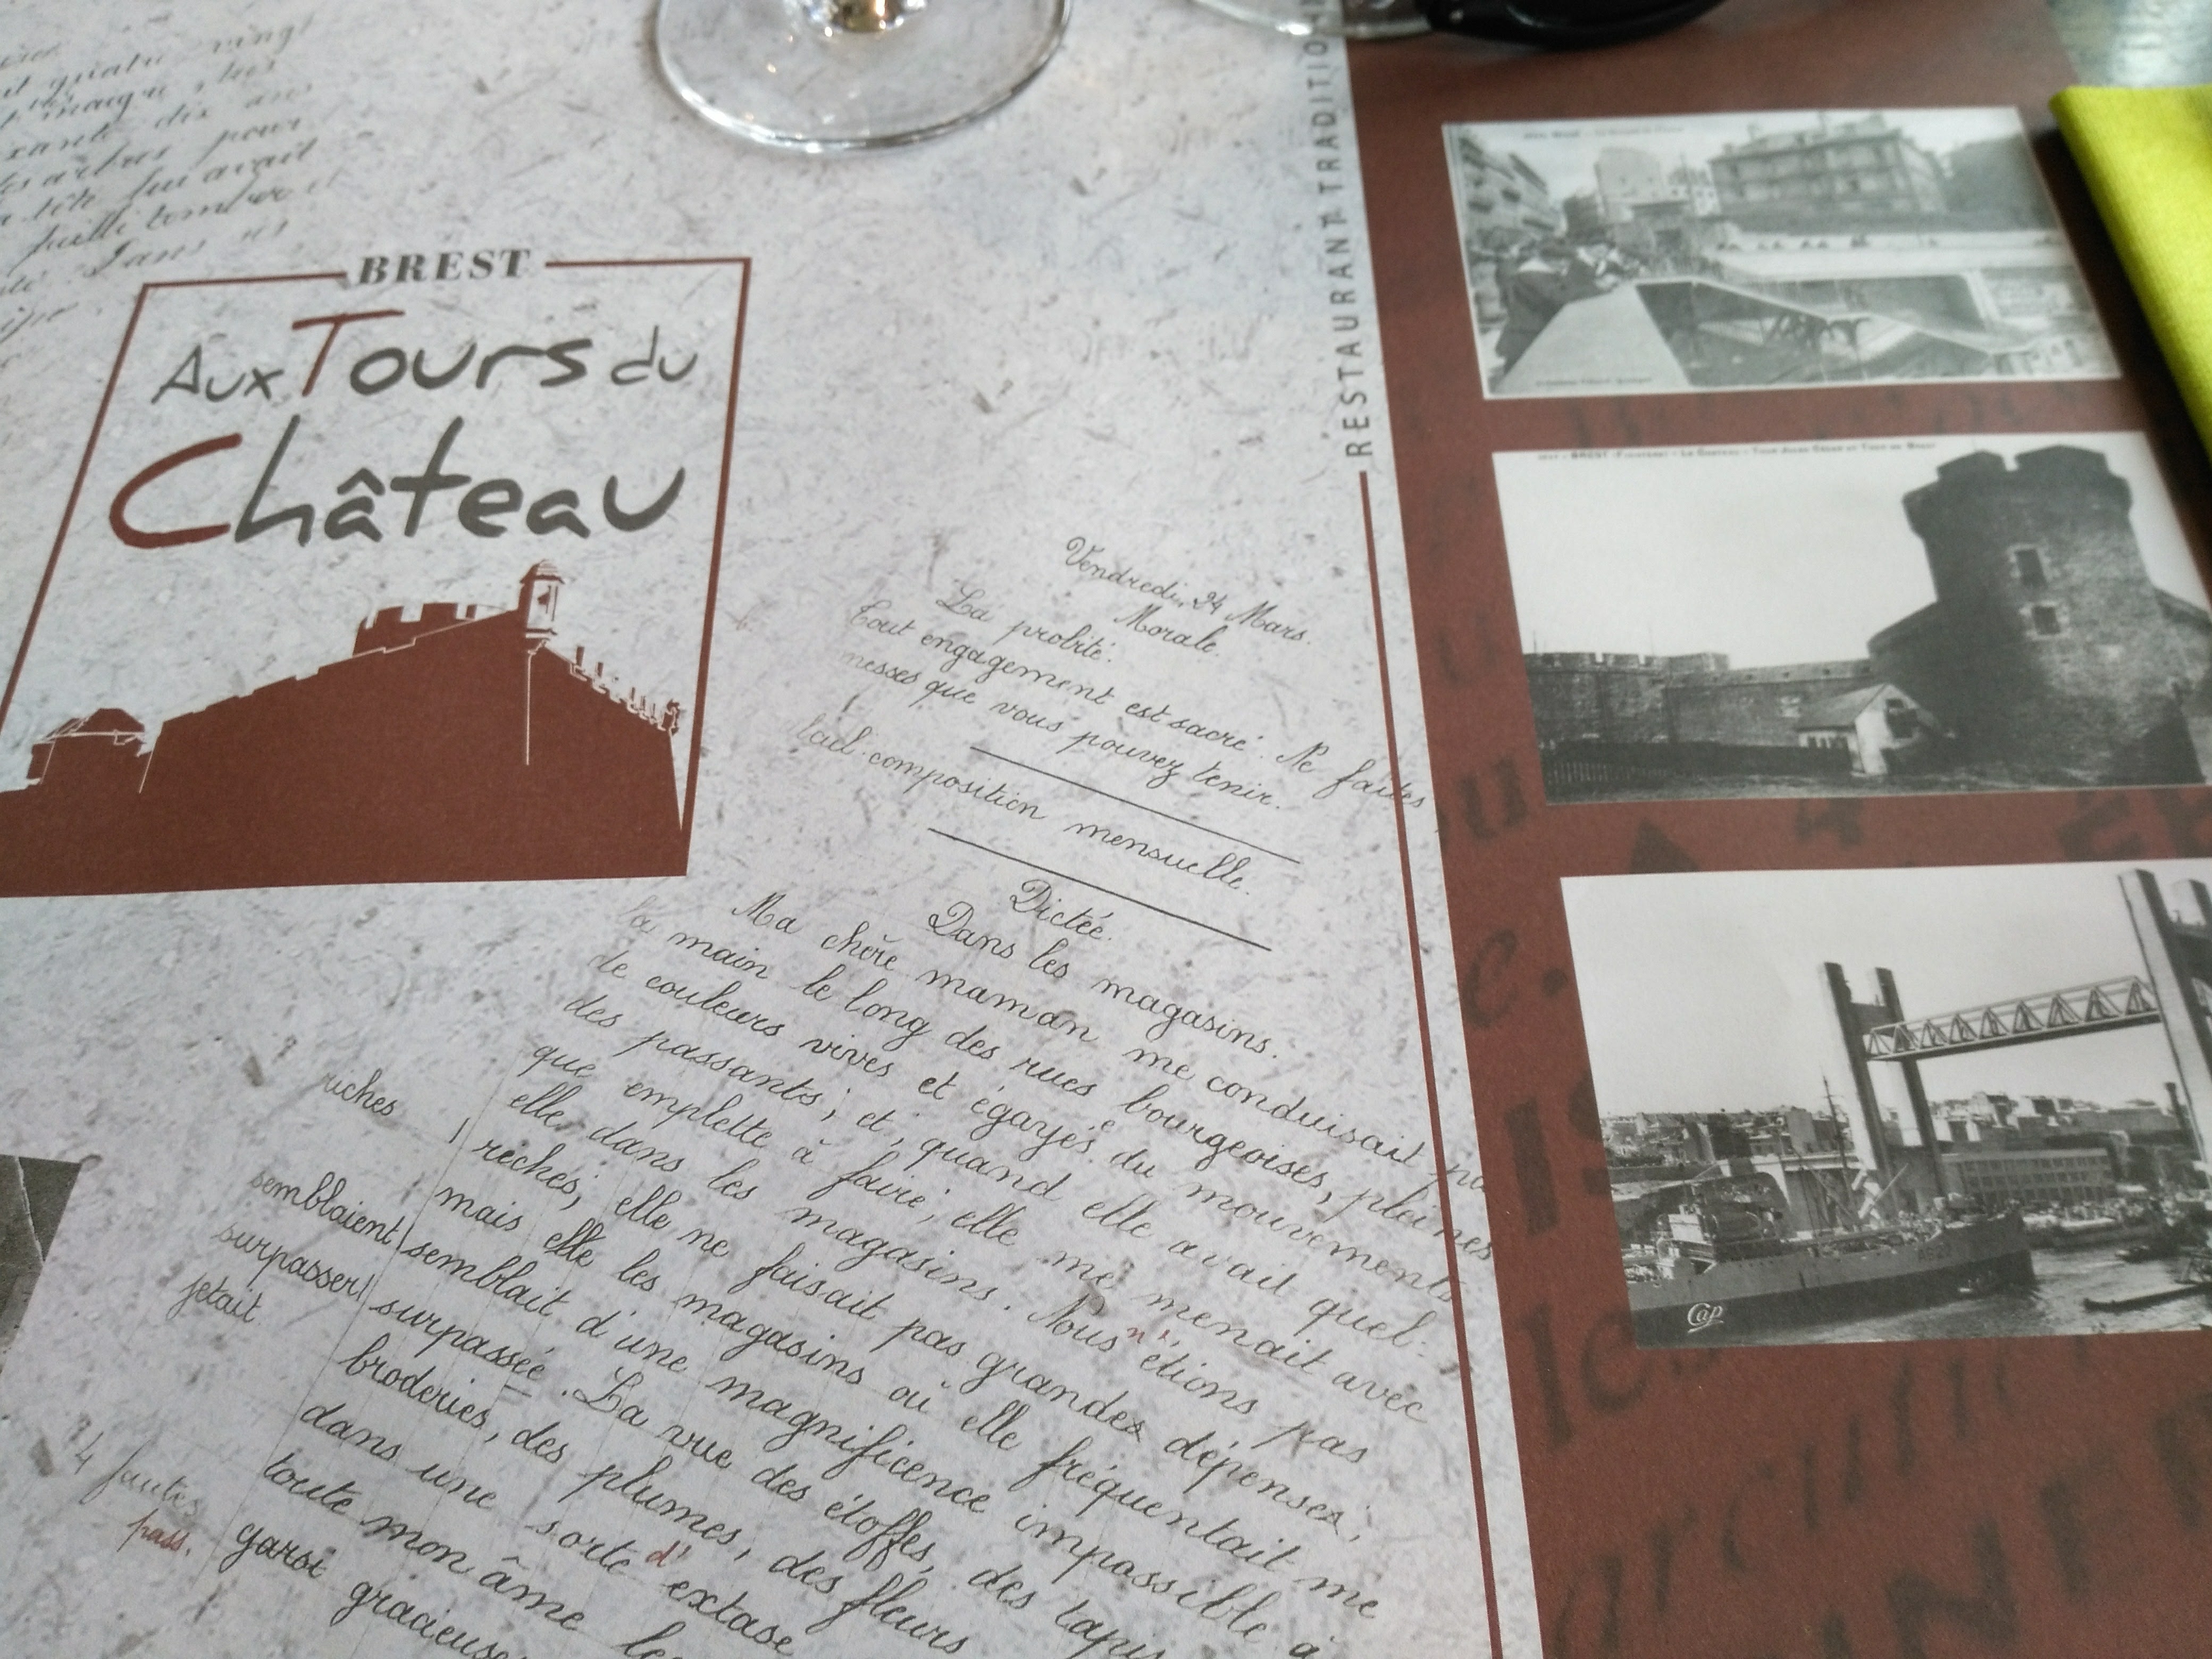 quatre vingt
maigre, ses
xante dix ans
arbres pour
tête lui avait
failli tomber et
Dans ses
BREST
Aux Tours du
Château
RESTAURANT TRADITION
Vendredi, 24 Mars.
Morale.
La probité.
Tout engagement est sacré. Ne faites
messes que vous pouvez tenir.
composition mensuelle.
Dictée.
Dans les magasins.
Ma chère maman me conduisait
la main le long des rues bourgeoises, pleines
de couleurs vives et égayés du mouvement
des passants; et, quand elle avait quel-
que emplette à faire, elle me menait avec
elle dans les magasins. Nous n' étions pas
riches
riches; elle ne faisait pas grandes dépenses;
mais elle les magasins où elle fréquentait me
semblaient
semblait d'une magnificence impossible à
surpasser
surpassée. La vue des étoffes, des tapis
jetait
broderies, des plumes, des fleurs
dans une sorte d' extase
toute mon âme
4 fautes
pass.
garsi
gracieuse
BREST (Finistère) - Le Château - Tour
Cap